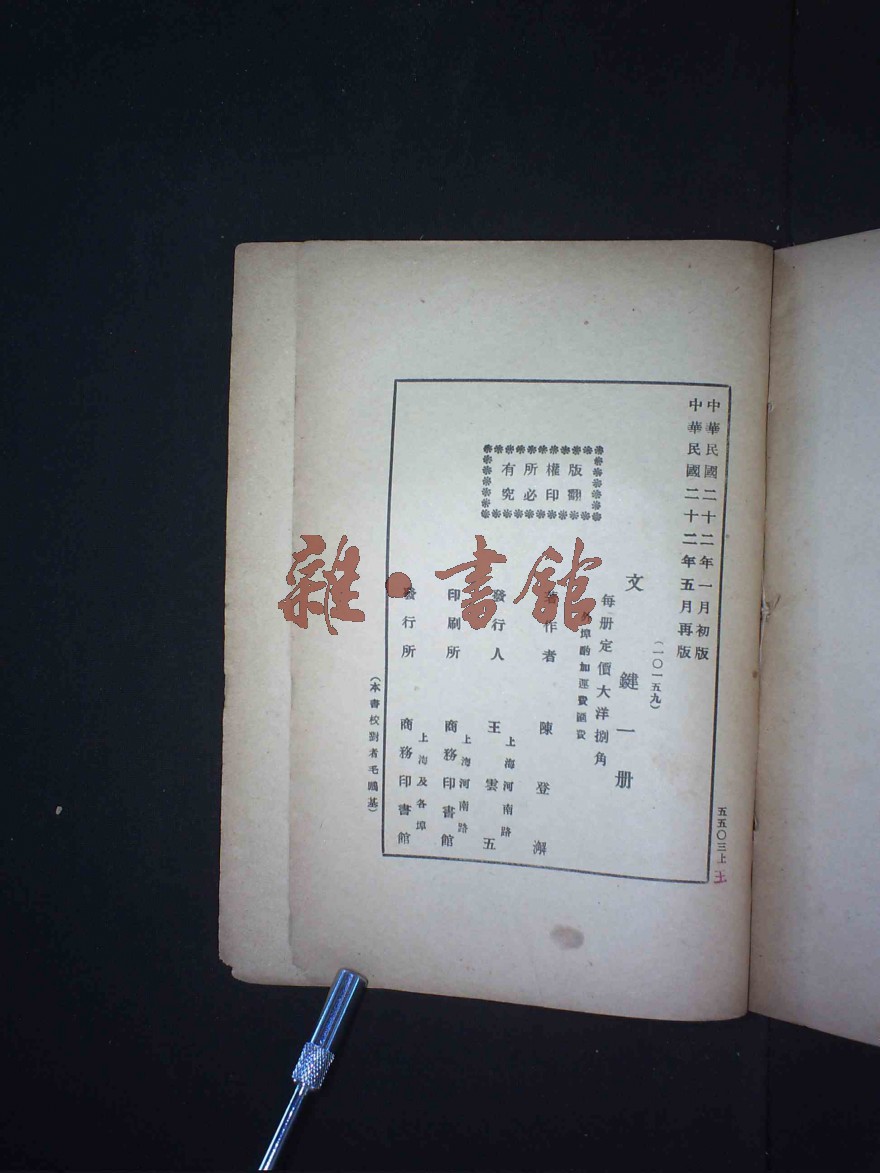 中華民國二十二年一月初版
中華民國二十二年五月再版
(一〇一五九)
文鍵一册
每册定價大洋捌角
埠酌加運費匯費
版權所有
翻印必究
著作者 陳登澥
發行人 王雲五
上海河南路
印刷所 商務印書館
上海河南路
發行所 商務印書館
上海及各埠
(本書校對者毛鷗基)
五五〇三上
王
雜·書館